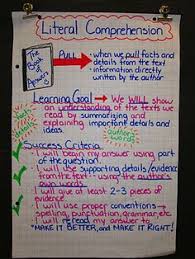 Literal Comprehension
The Book of Answers
PULL
when we pull facts and
details from the text
information directly
written by the author
Learning Goal → We WILL show
an understanding of the texts we
read by summarizing and
explaining important details and
ideas.
author's words
Success Criteria
I will begin my answer using part
of the question.
I will use supporting details/evidence
from the text - using the author's
own words.
I will give at least 2-3 pieces of
evidence.
I will use proper conventions -
spelling, punctuation, grammar, etc.
I will reread my answer to
"MAKE IT BETTER, and MAKE IT RIGHT!"